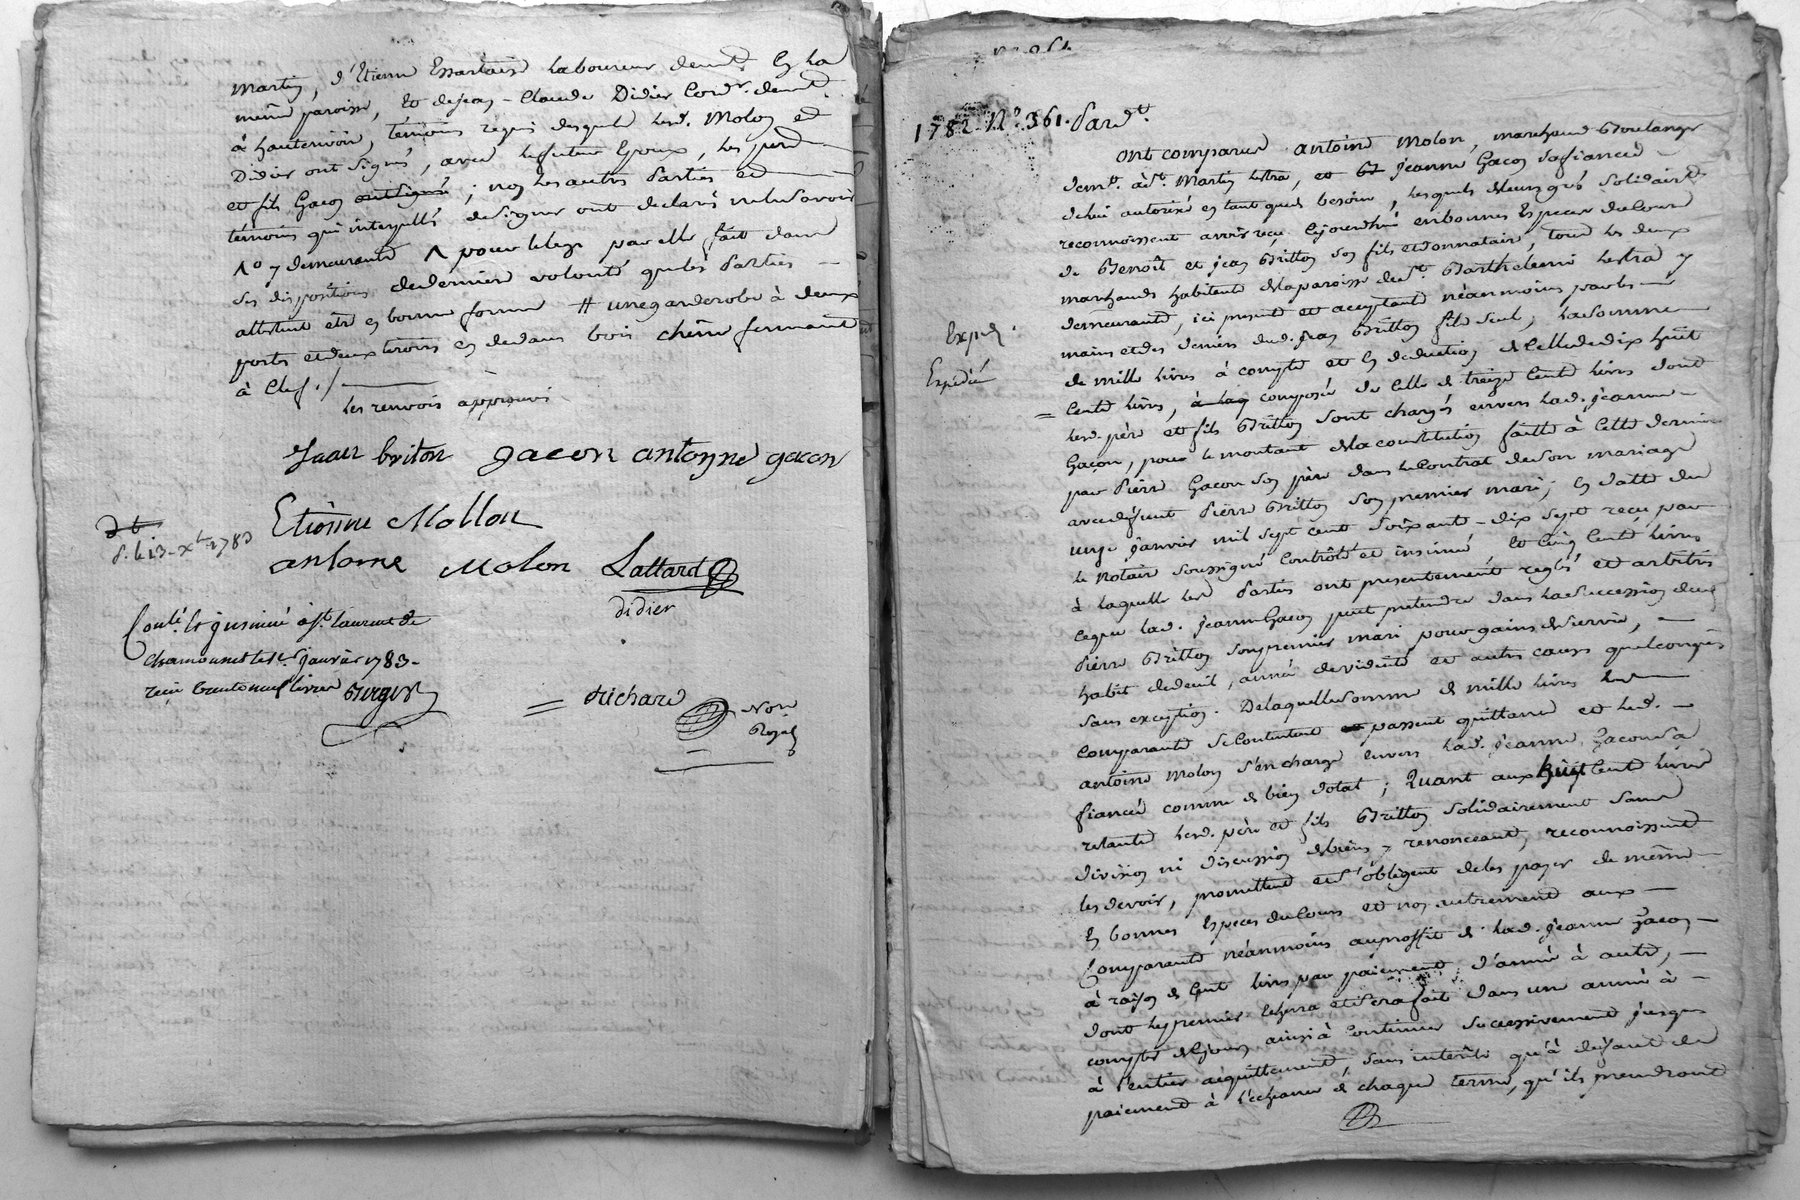 Martin, d'Etienne Essartais laboureur demt. en la
même paroisse, et de Jean-Claude Didier Cordr. demt.
à hauterivoire, témoins requis desquels led. Molon et
Didier ont signés, avec le futur Epoux, les pere
et fils Gacon ont signé; non les autres Parties et
témoins qui interpellés de signer ont declarés ne le savoir
demeurante ^ pour le legs par elle fait dans
ses dispositions de derniere volonté que les Parties
attestent etre en bonne forme # une garderobe à deux
portes et deux tiroirs en dedans bois chêne fermant
à clef ./.
les renvois approuvés
Jean briton gacon antoyne gacon
Etiênne Mollon
antoine Molon Lattard
didier
d. le 13 xbre 1783
Conlé. et insinué à St. laurent de
chamousset le janvier 1783
reçu trente neuf livres
Richard
Nore
Royal
1782 No. 361. Pardt.
ont comparus antoine Molon, marchand Boulanger
demt. à St. Martin lestra, et Jeanne Gacon sa fiancée
de lui autorisée en tant que de besoin, lesquels de leurs grés solidairt.
reconnoissent avoir reçu cejourd'hui en bonnes Especes du Cours
de Benoît et Jean Britton son fils et donnataire, tous les deux
marchands habitants de la paroisse de St. Barthelemi lestra y
demeurants, ici present et acceptants néanmoins par les
mains et des deniers dud. Jean Britton fils seul; la somme
de mille livres à compte et en deduction de celle de dix huit
Expedié
cents livres, à laq composée de celle de treize cents livres dont
lesd. père et fils Britton sont chargés envers lad. Jeanne
Gacon, pour le montant de la constitution faitte à cette derniere
par Pierre Gacon son père dans le Contrat de son mariage
avec defunt Pierre Britton son premier mari; en datte du
onze Janvier mil sept cent soixante-dix sept reçu par
le Notaire soussigné Contrôlé et insinué, et cinq cents livres
à laquelle les Parties ont presentement reglés et arbitrés
ceque lad. Jeanne Gacon peut pretendre dans la succession dud.
Pierre Britton son premier mari pour gains de survie,
habit de deuil, année de viduité et autres causes quelconques
sans exception. De laquelle somme de mille livres les
Comparants se contentent passent quittance et led.
antoine Molon s'en charge envers lad. Jeanne Gacon sa
fiancée comme de bien dotal; Quant aux huit cents livres
restants lesd. père et fils Britton solidairement sans
division ni discussion de biens y renonceant, reconnoissent
les devoir, promettent et s'obligent de les payer de même
en bonnes Especes du Cours et non autrement aux
Comparants néanmoins au proffit de lad. Jeanne Gacon
à raison de cent livres par paiement d'année à autre,
dont le premier echerra et sera fait dans une année à
compter de ce jour, ainsi à continuer successivement jusques
à l'entier acquittement, sans intérêts qu'à deffaut de
paiement à l'echeance de chaque terme, qu'ils prendront